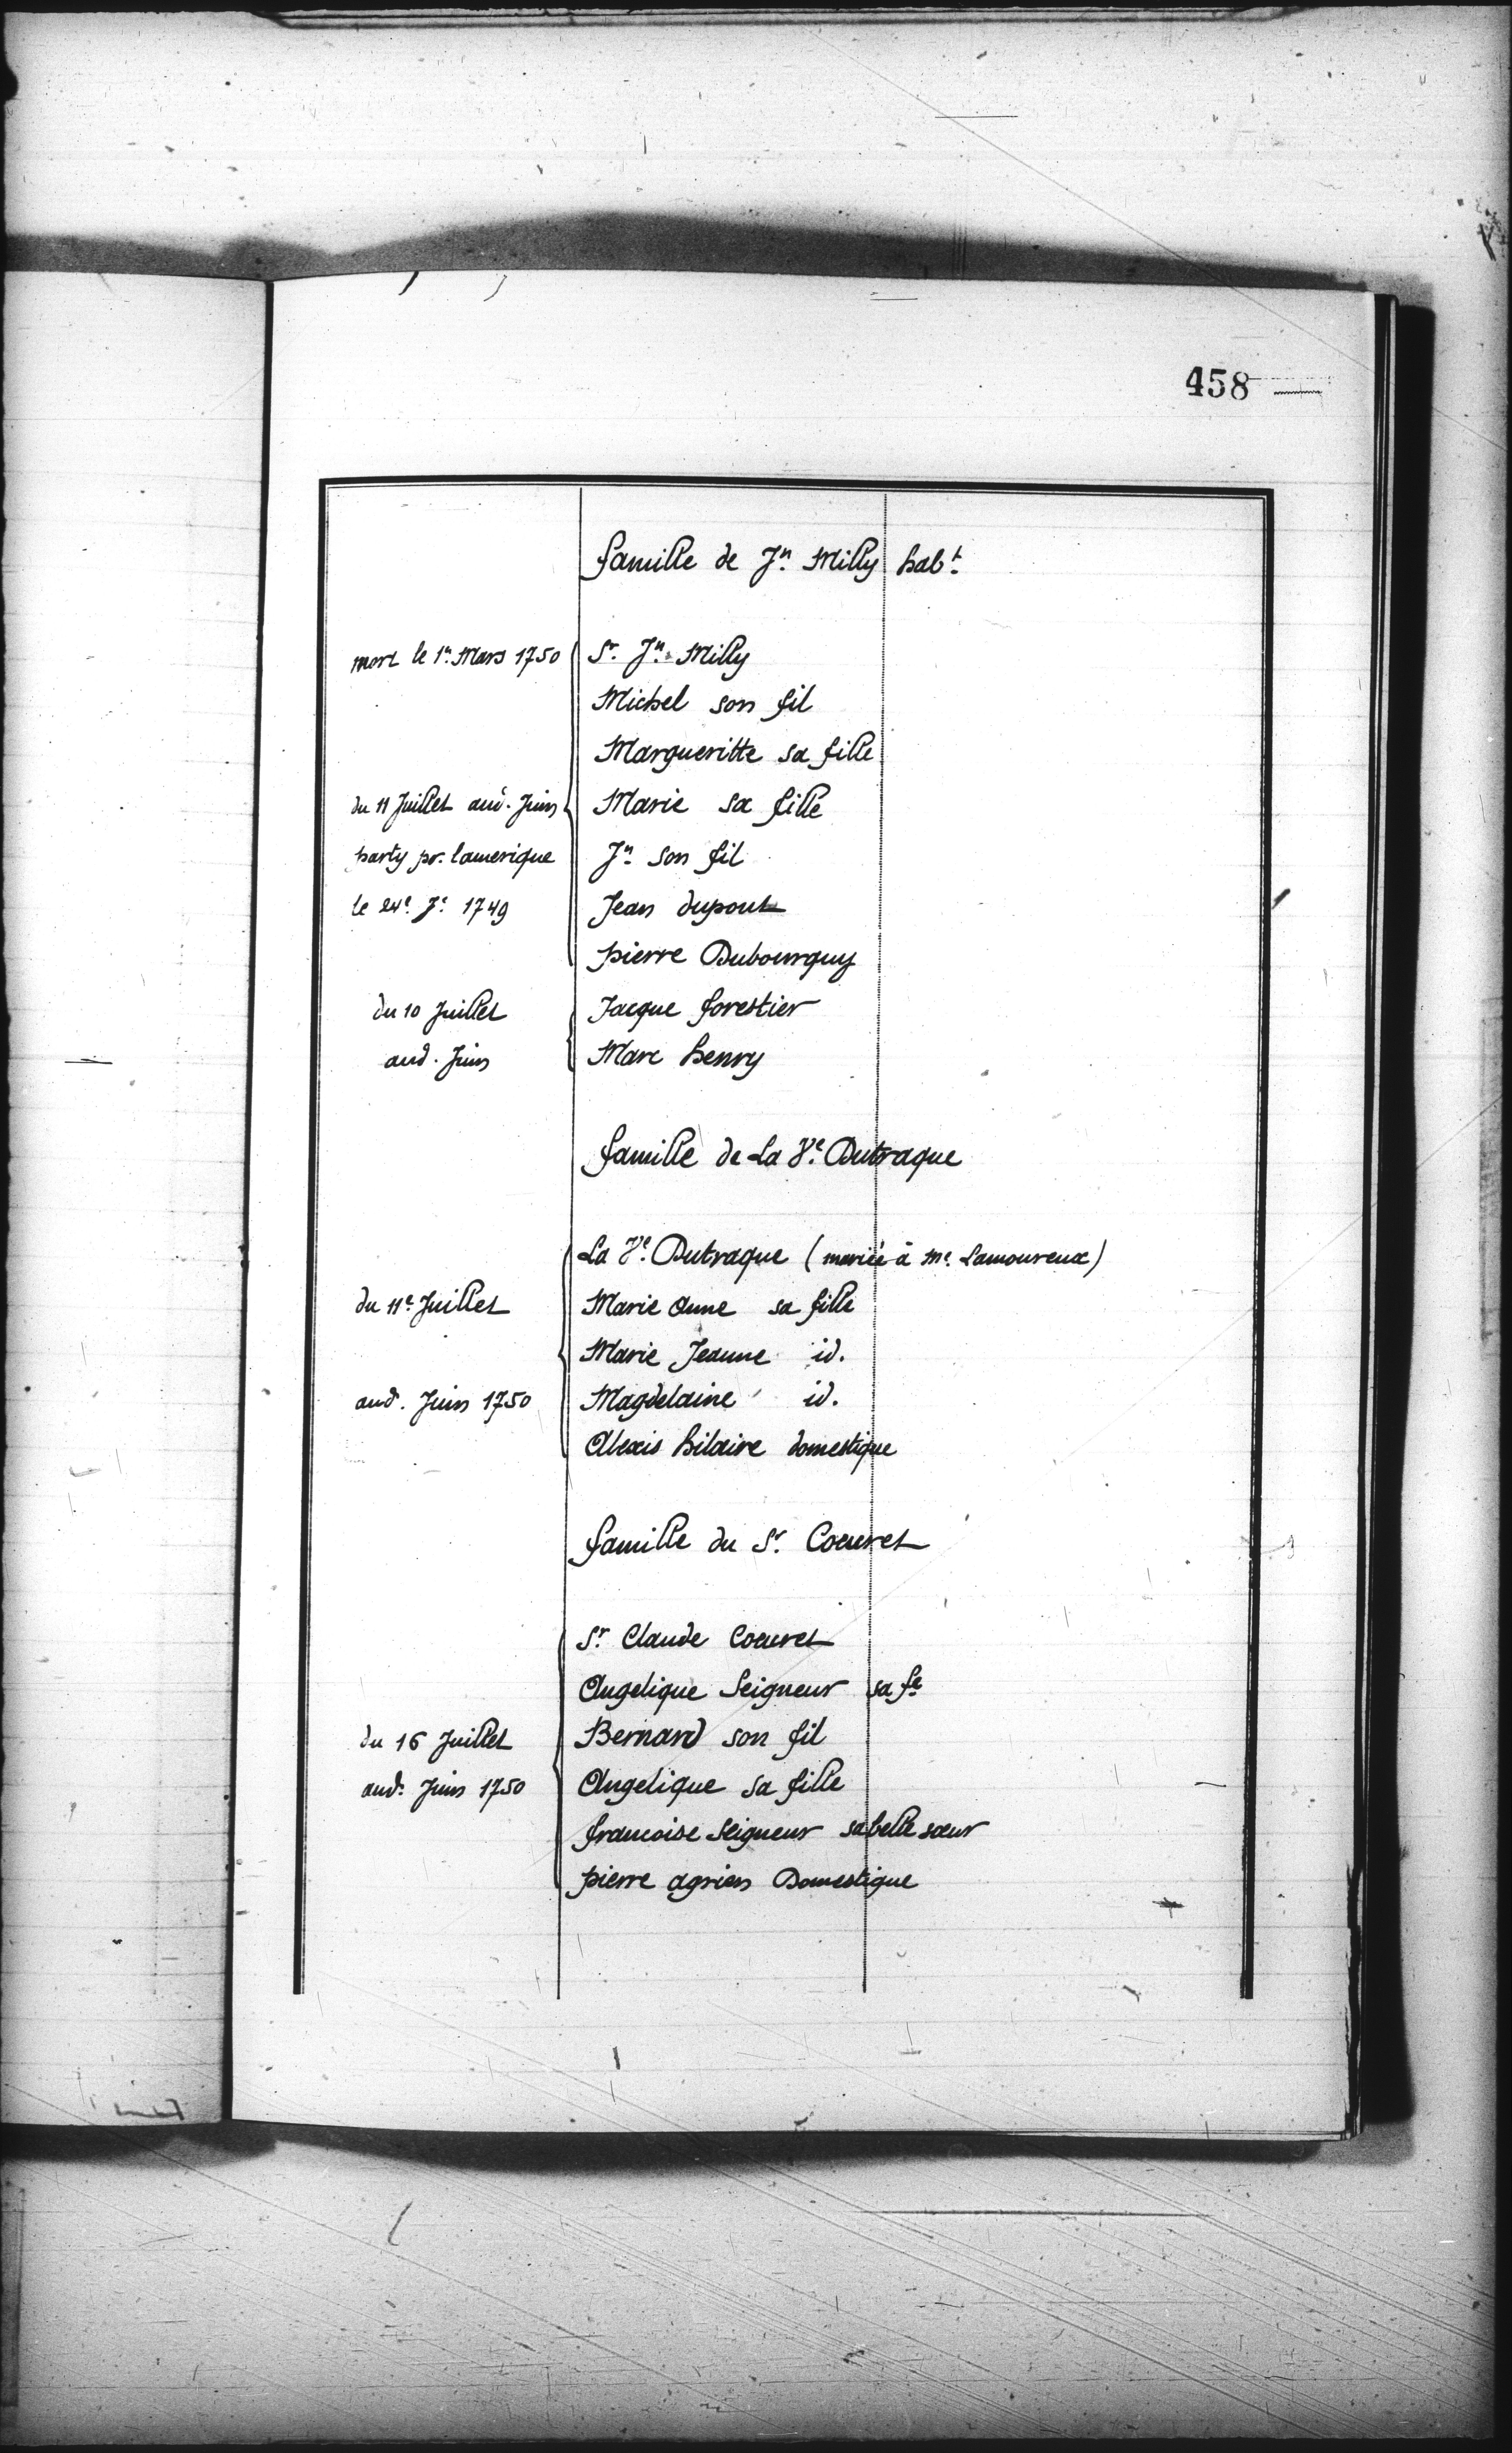 458
famille de Jn. Milly habt.
mort le 1er. Mars 1750 Sr. Jn. Milly
Michel son fil
Margueritte sa fille
du 11 Juillet aud. Juin Marie sa fille
party pr. lamerique Jn. son fil
le 24e. Je. 1749 Jean dupont
pierre Dubourguy
du 10 Juillet Jacque forestier
aud. Juin Marc henry
famille de La Ve. Dutraque
La Ve. Dutraque (mariée à Me. Lamoureux)
du 11e. Juillet Marie Anne sa fille
Marie Jeanne id.
aud. Juin 1750 Magdelaine id.
Alexis hilaire domestique
famille du Sr. Coeuret
Sr. Claude Coeuret
Angelique Seigneur sa fe.
du 16 Juillet Bernard son fil
aud. Juin 1750 Angelique sa fille
francoise Seigneur sa belle sœur
pierre agrien Domestique